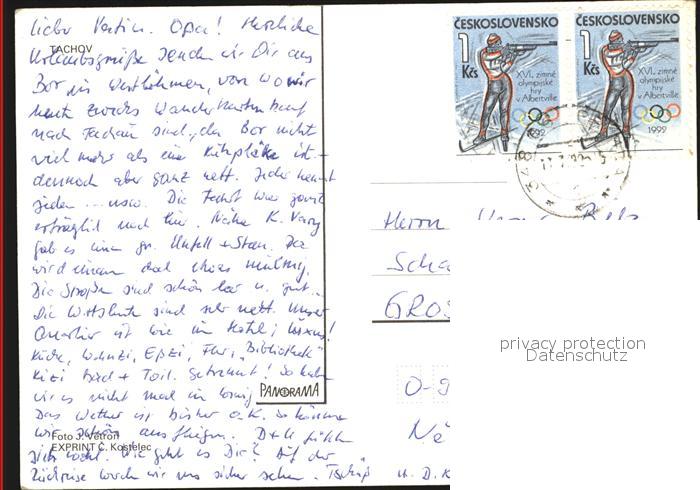 TACHOV
Lieber Vati u. Opa! Herzliche
Urlaubsgrüße senden wir Dir aus
Bor in Westböhmen, von wo wir
heute zwecks Wanderkartenkauf
nach Tachau sind, da Bor nicht
viel mehr als eine ist -
dennoch aber ganz nett. Jeder kennt
jeden ... usw. Die Fahrt war soweit
erträglich nach hier. Nähe K. Vary
gab es einen gr. Unfall + Stau. Da
wird einem doch etwas mulmig.
Die Straßen sind schön leer u. gut.
Die Wirtsleute sind sehr nett. Unser
Quartier ist wie im Hotel; Luxus!
Küche, Wohnzi, Eßzi, Flur, "Bibliothek"
Kizi Bad + Toil. Getrennt! So haben
wir es nicht mal in
Das Wetter ist bisher o.K. So können
wir schön ausfliegen. D + U fühlen
sich wohl. Wie geht es Dir? Auf der
Rückreise werden wir uns sicher sehen. Tschüß
u. D. K
PANORAMA
Foto J. Vetroň
EXPRINT Č. Kostelec
ČESKOSLOVENSKO
1 Kčs
XVI. zimné
olympijské
hry
v Albertville
1992
ČESKOSLOVENSKO
1 Kčs
XVI. zimné
olympijské
hry
v Albertville
1992
Herrn
Scha
GROS
O-9
privacy protection
Datenschutz